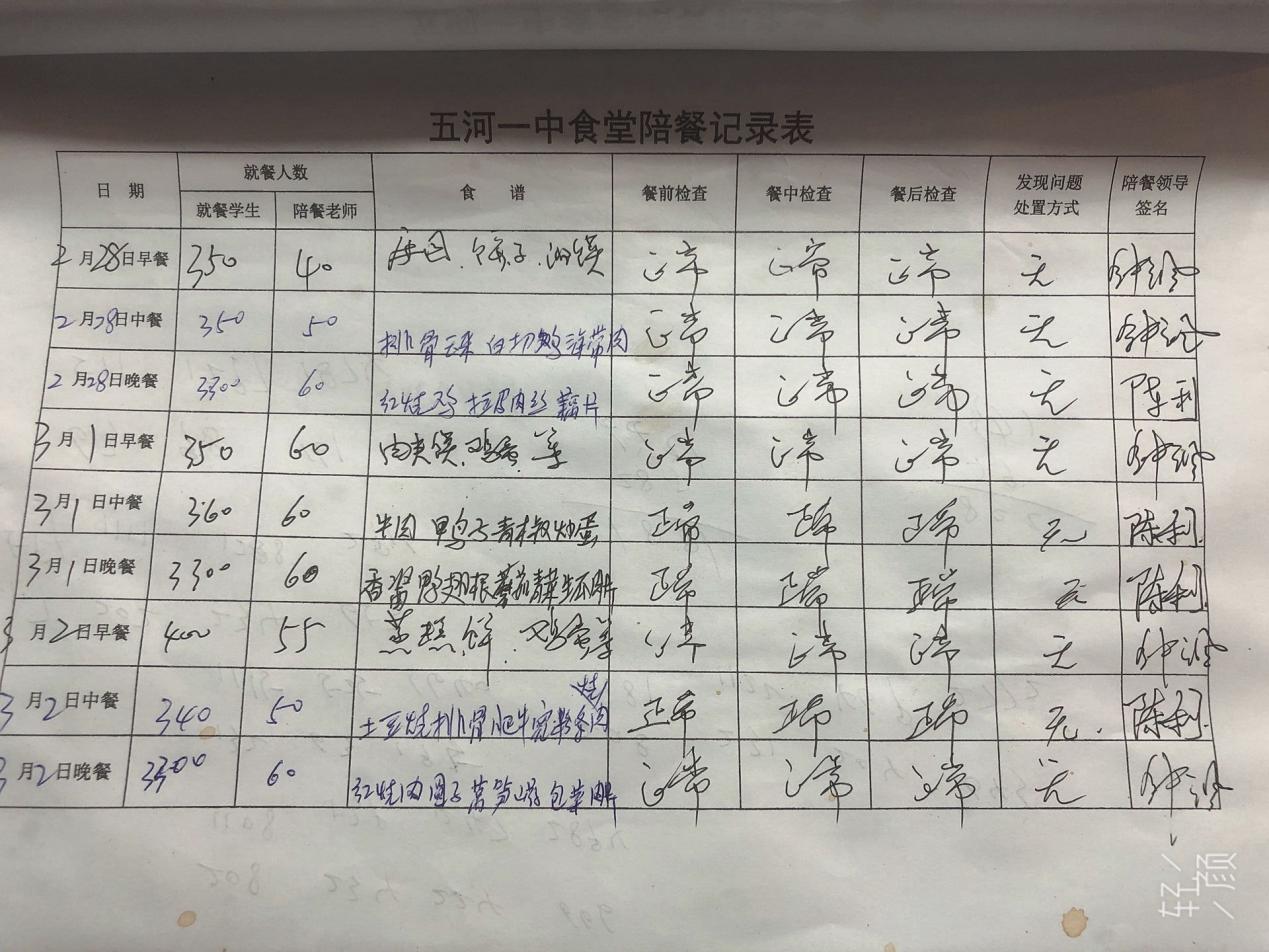 五河一中食堂陪餐记录表
日 期 就餐人数 食 谱 餐前检查 餐中检查 餐后检查 发现问题处置方式 陪餐领导签名
就餐学生 陪餐老师
2月28日早餐 350 40 正常 正常 正常 无
2月28日中餐 350 50 排骨玉米 白切鹅 海带肉 正常 正常 正常 无
2月28日晚餐 3300 60 红烧鸡 拉皮肉丝 藕片 正常 正常 正常 无 陈利
3月1日早餐 350 60 肉夹馍、鸡蛋、等 正常 正常 正常 无
3月1日中餐 360 60 牛肉 鸭子 青椒炒蛋 正常 正常 正常 无 陈利
3月1日晚餐 3300 60 香酱鸭翅根 蘑菇青菜 肉片 正常 正常 正常 无 陈利
3月2日早餐 400 55 蒸 饼、鸡蛋等 正常 正常 无
3月2日中餐 340 50 土豆烧排骨 肥牛 粉条烧肉 正常 正常 正常 无. 陈利.
3月2日晚餐 3300 60 红烧肉圆子 莴笋 包菜肉片 正常 正常 正常 无
轻颜